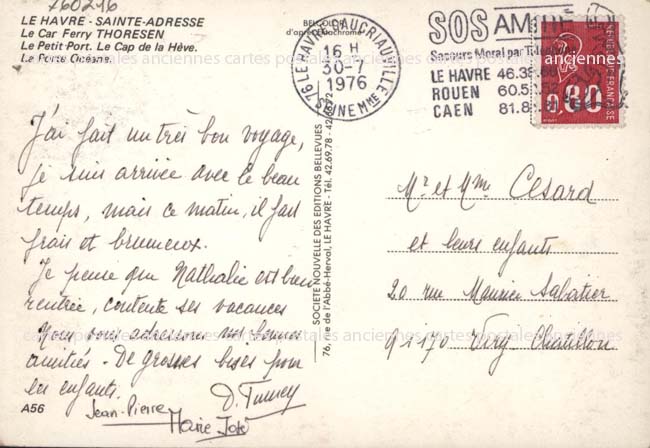 760216
LE HAVRE - SAINTE-ADRESSE
Le Car Ferry THORESEN
Le Petit Port. Le Cap de la Hève.
La Porte Océane.
76 LE HAVRE GAUCRIAUVILLE
16 H
30-7
1976
SEINE MME
SOS AMITIÉ
Secours Moral par Téléphone
LE HAVRE 46.36.66
ROUEN 60.5 .52
CAEN 81.8 . 1
0,80
J'ai fait un très bon voyage,
je suis arrivée avec le beau
temps, mais ce matin, il fait
frais et brumeux.
Je pense que Nathalie est bien
rentrée, contente ses vacances
Nous vous adressons nos bonnes
amitiés - De grosses bises pour
les enfants.
Jean-Pierre
Marie José
SOCIETE NOUVELLE DES EDITIONS BELLEVUES
76, rue de l'Abbé-Herval, LE HAVRE - Tél. 42.69.78 - 42.69.72
Mr et Mme Cesard
et leurs enfants
20 rue Maurice Sabatier
91170 Viry-Chatillon
A56
cartes postales anciennes cartes postales anciennes cartes postales anciennes
cartes postales anciennes cartes postales anciennes cartes postales anciennes